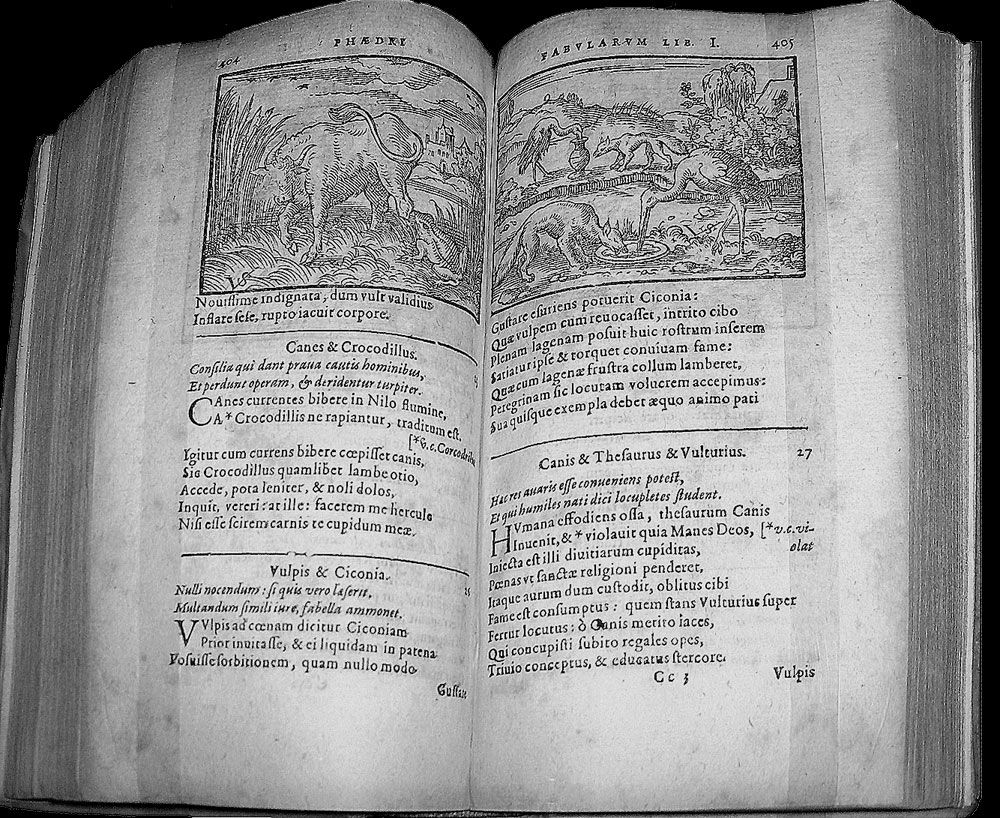 404
PHÆDRI
Nouissime indignata, dum vult validius
Inflare sese, rupto iacuit corpore.
Canes & Crocodillus.
Consilia qui dant praua cautis hominibus,
Et perdunt operam, & deridentur turpiter.
CAnes currentes bibere in Nilo flumine,
A* Crocodillis ne rapiantur, traditum est.
[*v.c. Corcodrillis
Igitur cum currens bibere cœpisset canis,
Sic Crocodillus quamlibet lambe otio,
Accede, pota leniter, & noli dolos,
Inquit, vereri: at ille: facerem me hercule
Nisi esse scirem carnis te cupidum meæ.
Vulpis & Ciconia.
Nulli nocendum: si quis vero læserit,
Multandum simili iure, fabella ammonet.
VVlpis ad cœnam dicitur Ciconiam
Prior inuitasse, & ei liquidam in patena
Posuisse sorbitionem, quam nullo modo
Gustare
FABVLARVM LIB. I.
405
Gustare esuriens potuerit Ciconia:
Quæ vulpem cum reuocasset, intrito cibo
Plenam lagenam posuit huic rostrum inserens
Satiatur ipse & torquet conuiuam fame:
Quæ cum lagenæ frustra collum lamberet,
Peregrinam sic locutam volucrem accepimus:
Sua quisque exempla debet æquo animo pati
Canis & Thesaurus & Vulturius.
27
Hæc res auaris esse conueniens potest,
Et qui humiles nati dici locupletes student.
HVmana effodiens ossa, thesaurum Canis
Inuenit, & * violauit quia Manes Deos, [*v.c. vi-
olat
Iniecta est illi diuitiarum cupiditas,
Pœnas vt sanctæ religioni penderet,
Itaque aurum dum custodit, oblitus cibi
Fame est consumptus: quem stans Vulturius super
Fertur locutus: ô Canis merito iaces,
Qui concupisti subito regales opes,
Triuio conceptus, & educatus stercore.
Cc 3
Vulpis